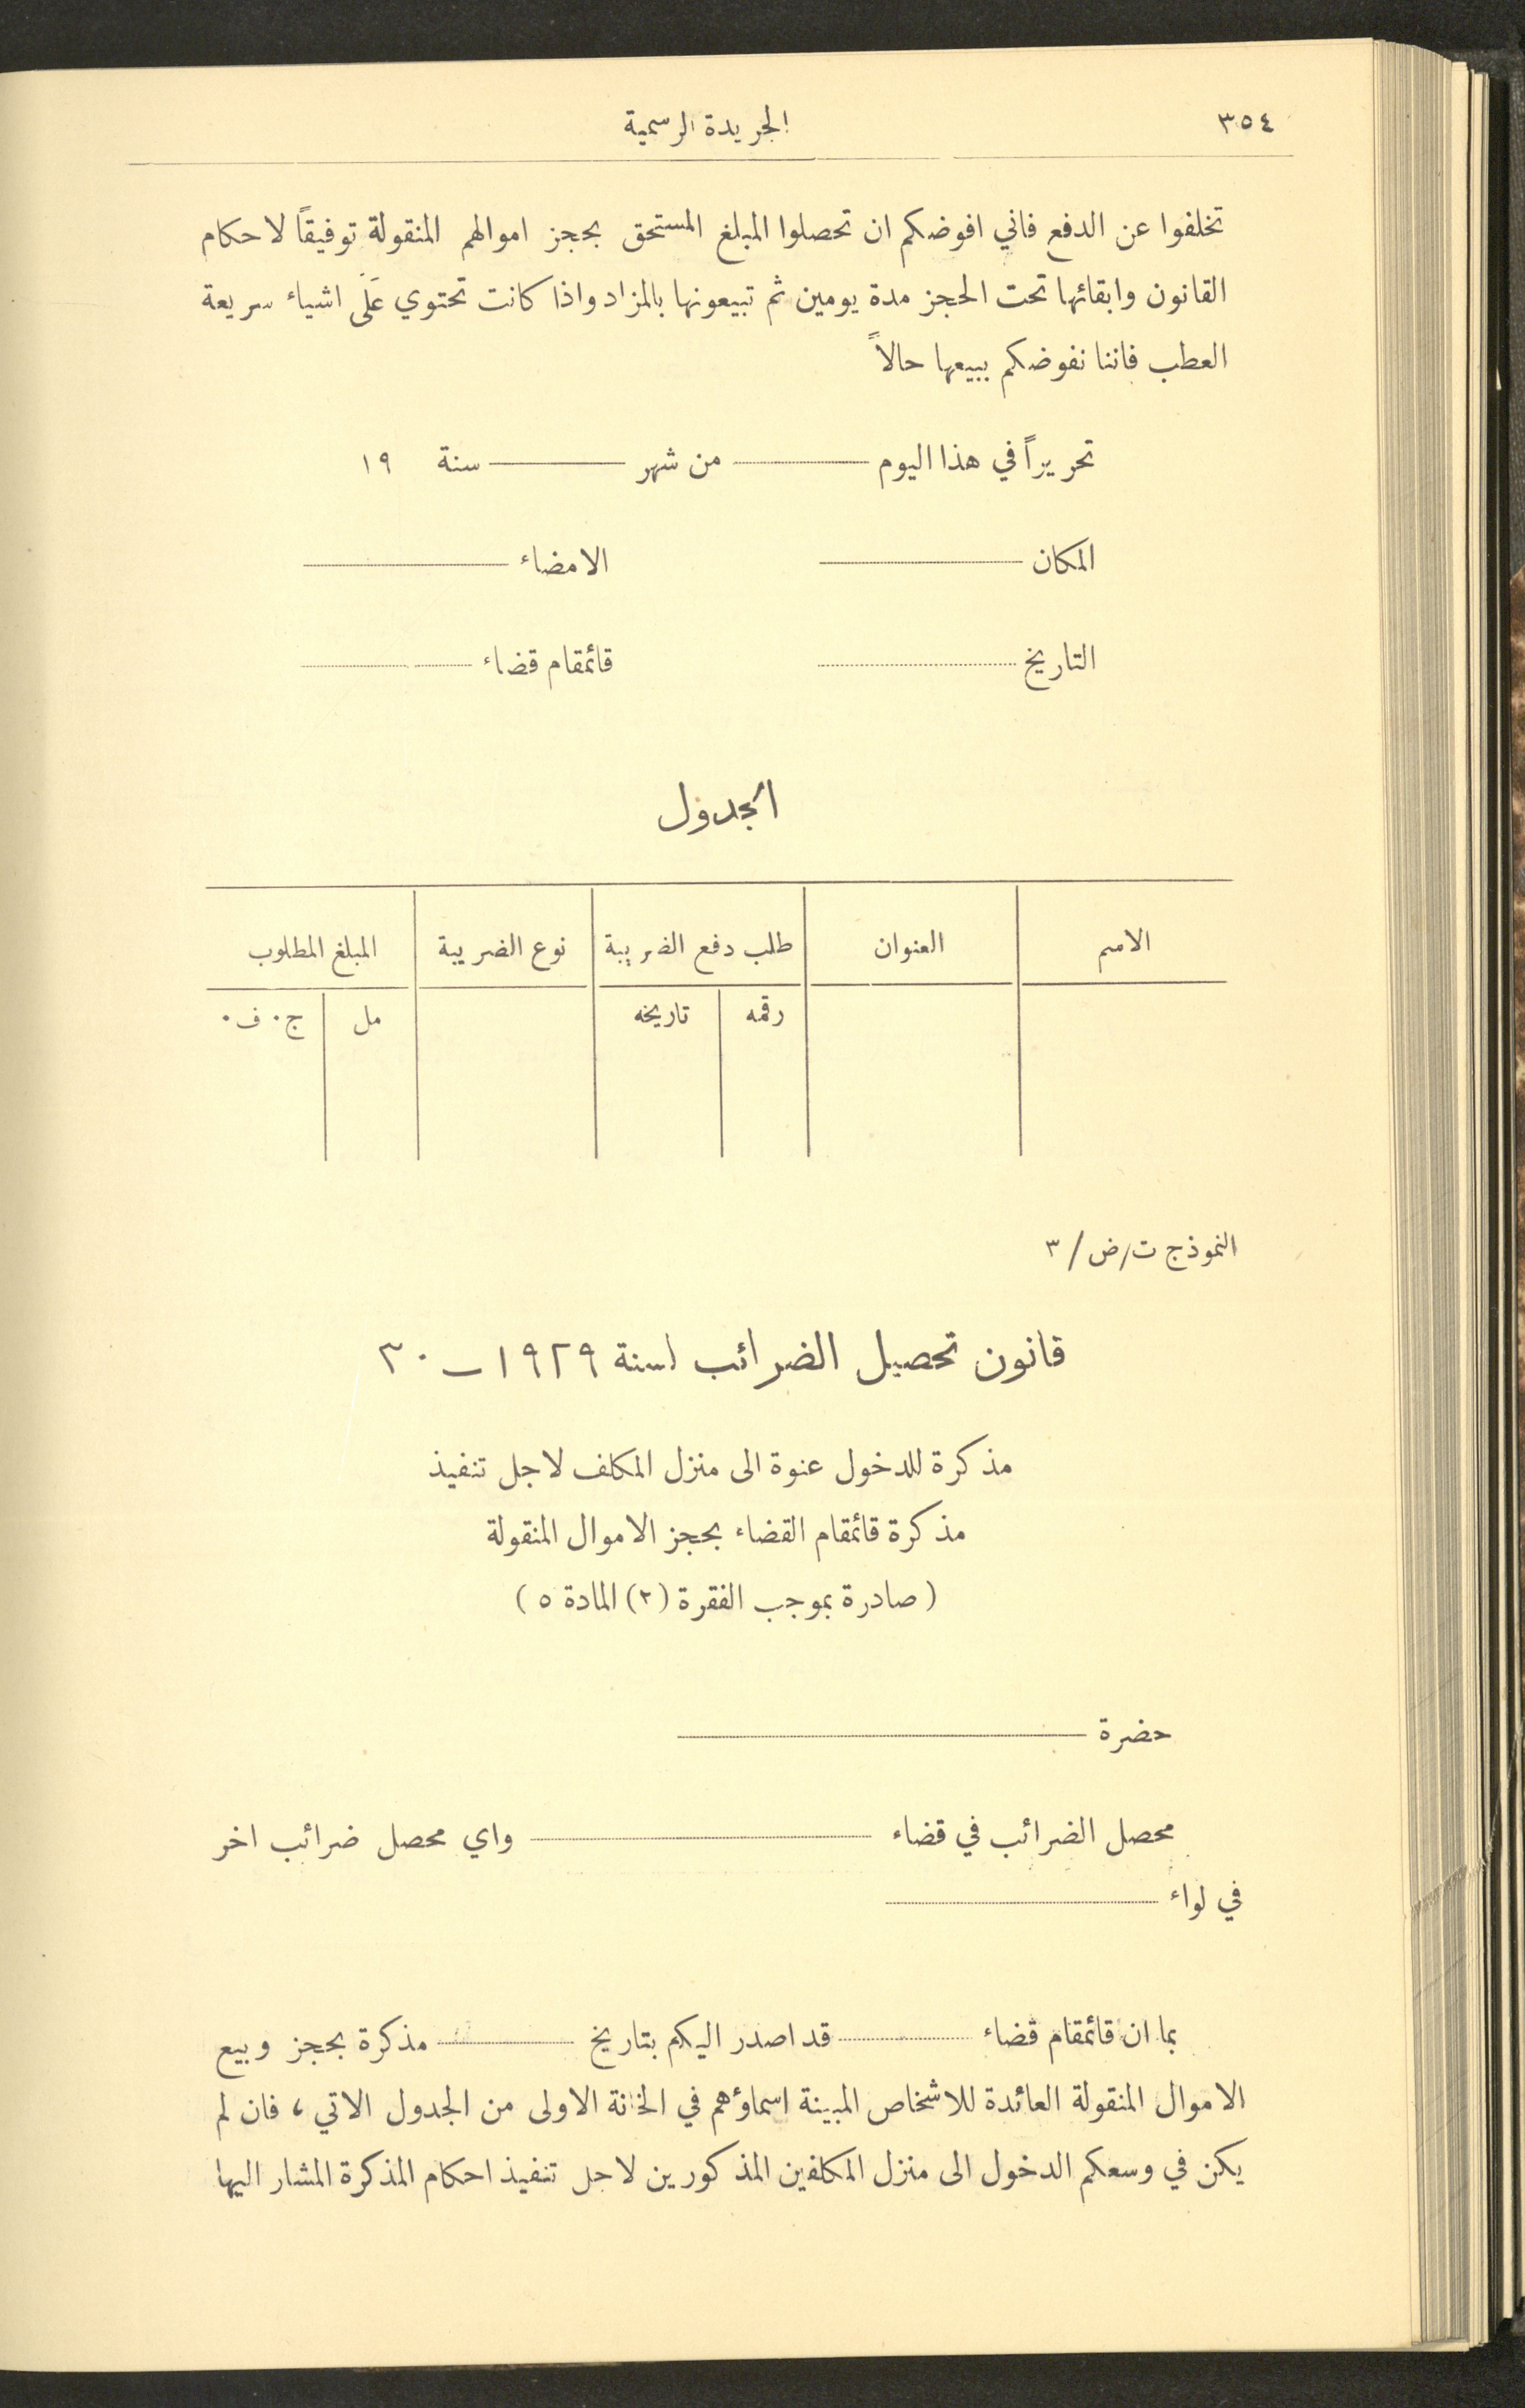 ٣٥٤
الجريدة الرسمية
تخلفوا عن الدفع فاني افوضكم ان تحصلوا المبلغ المستحق بحجز اموالهم المنقولة توفيقاً لاحكام
القانون وابقائها تحت الحجز مدة يومين ثم تبيعونها بالمزاد واذا كانت تحتوي عَلَى اشياء سريعة
العطب فاننا نفوضكم ببيعها حالاً
تحريراً في هذا اليوم ــــــ من شهر ــــــ سنة ١٩
المكان ــــــ الامضاء ــــــ
التاريخ ــــــ قائمقام قضاء ــــــ
الجدول
الاسم العنوان طلب دفع الضريبة نوع الضريبة المبلغ المطلوب
رقمه تاريخه مل ج. ف.
النموذج ت/ض/٣
قانون تحصيل الضرائب لسنة ١٩٢٩ــ٣٠
مذكرة للدخول عنوة الى منزل المكلف لاجل تنفيذ
مذكرة قائمقام القضاء بحجز الاموال المنقولة
(صادرة بموجب الفقرة (٢) المادة ٥)
حضرة ــــــ
محصل الضرائب في قضاء ــــــ واي محصل ضرائب اخر
في لواء ــــــ
بما ان قائمقام قضاء ــــــ قد اصدر اليكم بتاريخ ــــــ مذكرة بحجز وبيع
الاموال المنقولة العائدة للاشخاص المبينة اسماؤهم في الخانة الاولى من الجدول الاتي، فان لم
يكن في وسعكم الدخول الى منزل المكلفين المذكورين لاجل تنفيذ احكام المذكرة المشار اليها